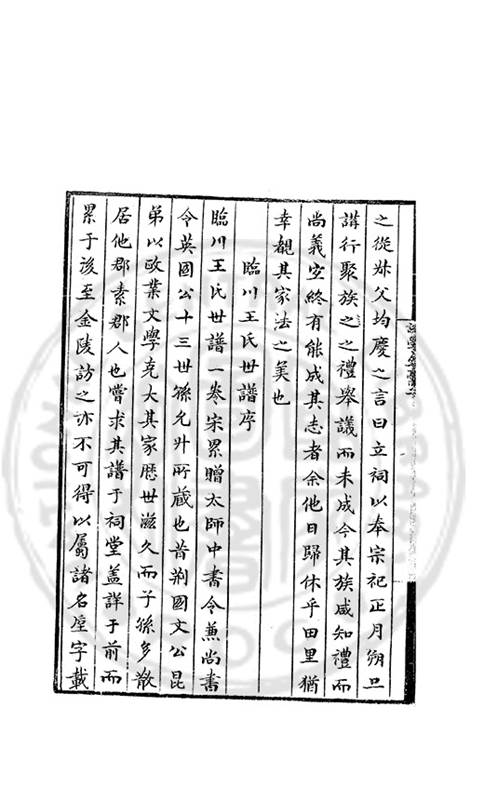 之從姊父均慶之言曰立祠以奉宗祀正月朔旦
講行聚族之之禮舉議而未成今其族咸知禮而
尚義安終有能成其志者余他日歸休乎田里猶
幸覩其家法之美也
臨川王氏世譜序
臨川王氏世譜一卷宋累贈太師中書令兼尚書
令英國公十三世孫允升所藏也昔荆國文公昆
弟以政業文學克大其家歷世滋久而子孫多散
居他郡素郡人也嘗求其譜于祠堂盖詳于前而
累于後至金陵訪之亦不可得以屬諸名屋字載